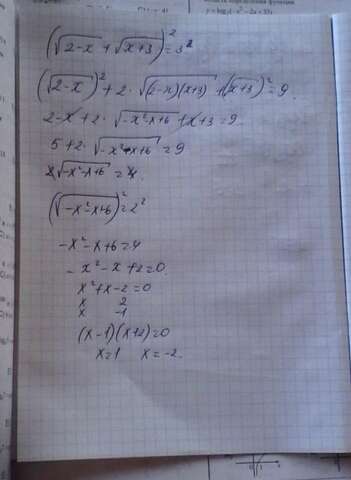 (√2-x + √x+3)² = 3²
(√2-x)² + 2·√(2-x)(x+3) + (√x+3)² = 9
2-x+2·√-x²-x+6 + x+3 = 9
5+2·√-x²-x+6 = 9
2√-x²-x+6 = 4.
(√-x²-x+6)² = 2²
-x²-x+6=4
-x²-x+2=0
x²+x-2=0
x 2
x -1
(x-1)(x+2)=0
x=1 x=-2.